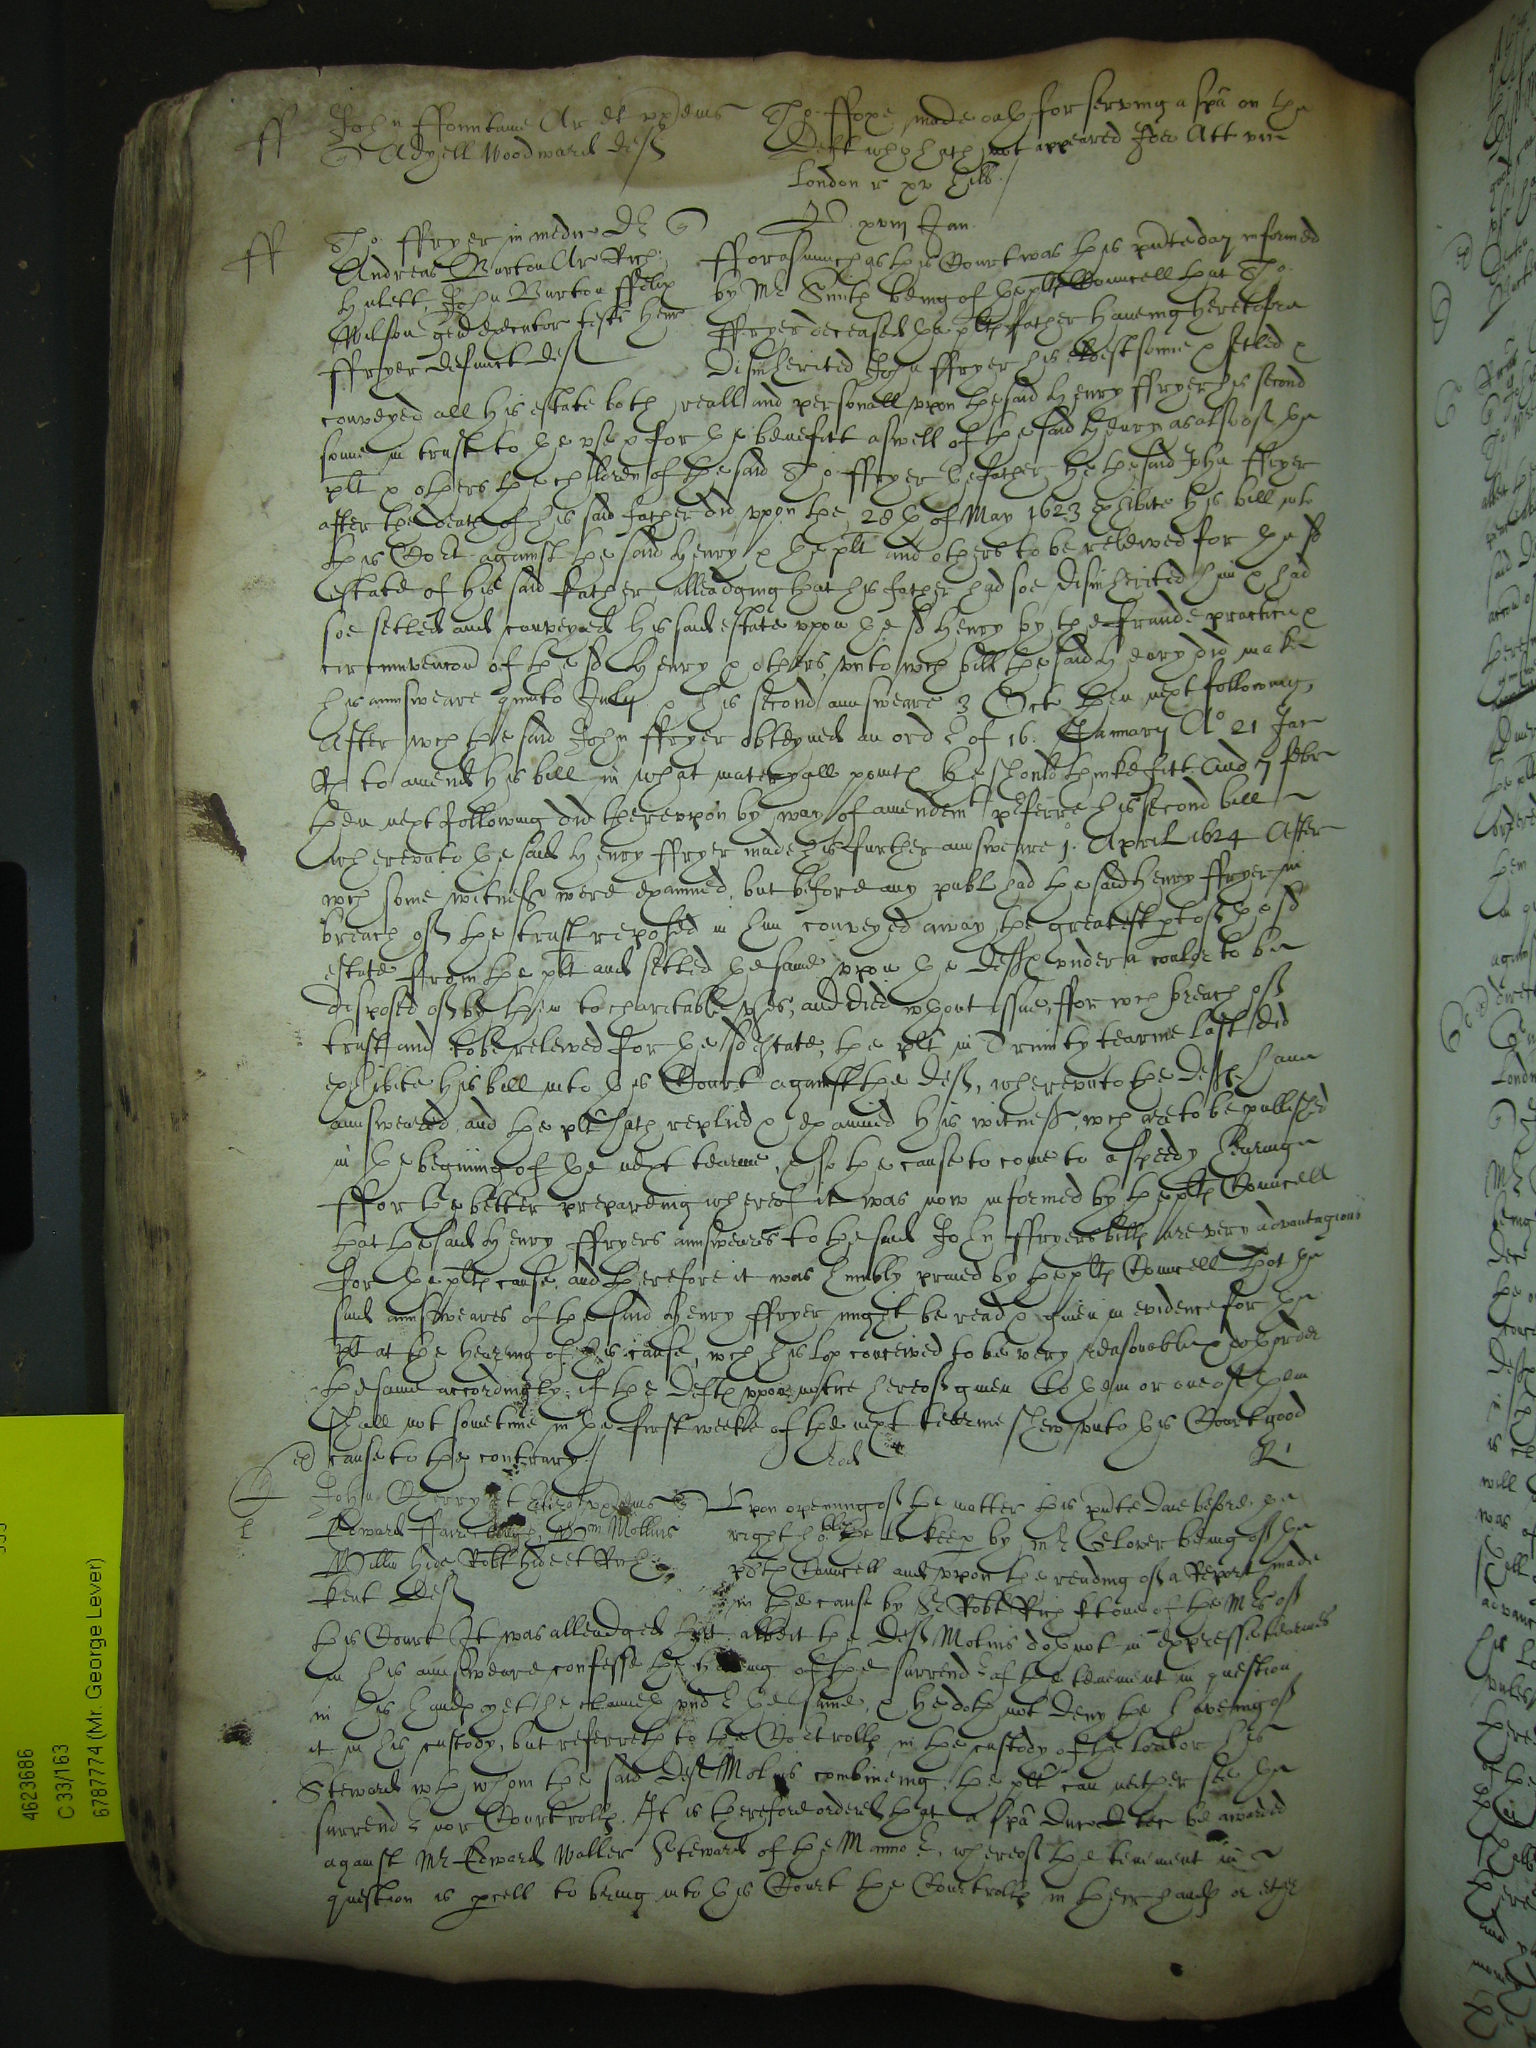 ff John ffountaine Ar et ux quer
Adyell Woodward deft
Tho: ffoxe made oath for serving a spa on the
Deft who hath not appeared
London r xv
xviij Jan
ff Tho: ffryer in medic Dr
Andreas Burton Ar Rich:
Hulett, John Burton ffelix
Wilson gen executor testi Henr
ffryer defunct def
fforasmuch as this Court was this pnte day informed
by Mr Smith being of the plts Councell that Tho:
ffryer deceased the plts father haveing heretofore
Disinherited John ffryer his eldest sonne & setled &
conveyed all his estate both reall and personall upon the said Henry ffryer his second
sonne in trust to the use & for the benefitt aswell of the said Henry as also of the
plt & others the children of the said Tho: ffryer the father, he the said John ffryer
after the death of his said father did upon the 28th of May 1623 exhibite his bill into
this Cort against the said Henry & the plt and others to be releived for the sd
estate of his said father alleadging that his father had soe disinherited him & had
soe setled and conveyed his said estate upon the sd Henry by the fraude practice &
circumvencon of the sd Henry & others, unto wch bill the said Henry did make
his aunsweare quinto July & his second aunsweare 3 Octo then next following,
After wch the said John ffryer obteyned an ordr of 16. January Ao 21 Jac
Rs to amend his bill in what materyall points he should thinke fitt. And 7 febr
then next following did thereupon by way of amendemt preferre his second bill
whereunto the said Henry ffryer made his further aunsweare 1o April 1624 After
wch some witness were examined, but before any publ had the said Henry ffryer in
breach of the trust reposed in him conveyed away the greatest pte of the sd
estate from the plt and setled the same upon the Defts under a coulor to be
disposed of by them to charitable uses, and died wthout issue, ffor wch breach of
trust and to be releived for the sd estate, the plt in Trinity tearme last did
exhibite his bill into this Court against the defts, whereunto the defts have
aunsweared, and the plt hath replied & examined his witness, wch are to be published
in the begining of the next tearme, & so the cause to come to a speedy hearing
ffor the better prepareing whereof it was now informed by the plts Councell
that the said Henry ffryers aunsweares to the said John ffryers bills are very advantagious
for the plts cause, and therefore it was humbly praied by the plts Councell that the
said aunsweares of the said Henry ffryer might be read & given in evidence for the
plt at the hearing of this cause, wch his Lop conceived to be very reasonable & doth order
the same accordingly, if the defts upon notice hereof given to them or one of them
shall not sometime in the first weeke of the next tearme shew unto this Court good
cause to the contrary.
John Cherry et Eliz ux quer
Edward ffaire Wm Mollins
Willm Hide Robt Hide et Rich
Kent def
Upon opening of the matter this pnte daie before the
right hoble the Lo keep by Mr Glover being of the
plts Councell and upon the reading of a Report made
in the cause by Sr Robt Rich kt one of the Mrs of
this Court It was alleadged that albeit the deft Molins doth not in expresse tearmes
in his aunsweare confesse the haveing of the surrendr of the tenement in question
in his hands yet he claimeth undr the same, & he doth not deny the haveing of
it in his custody, but referreth to the Cort rolls in the custody of the
Steward wth whom the said deft Molins combineing, the plt can neither see the
surrendr nor Court rolls. It is therefore ordered that a spa Duces tec be awarded
against Mr Edward Waller Steward of the Mannor, whereof the tenement in
question is pcell to bring into this Court the Court rolls in their hands or
46236​86
C 33/163
6787774 (Mr. George Lever)